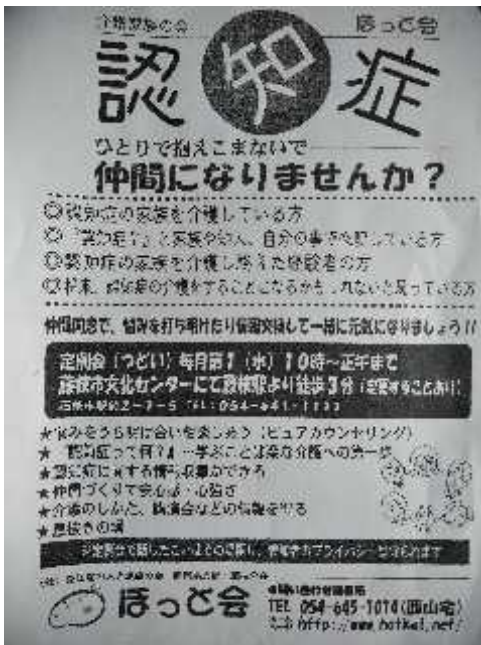 介護家族の会 ほっと会
認知症
ひとりで抱えこまないで
仲間になりませんか？
◎認知症の家族を介護している方
◎『認知症？』と家族や知人、自分の事を心配している方
◎認知症の家族を介護し終えた経験者の方
◎将来、認知症の介護をすることになるかもしれないと思っている方
仲間同志で、悩みを打ち明けたり情報交換して一緒に元気になりましょう！！
定例会（つどい）毎月第1（水）10時〜正午まで
市文化センターにて 駅より徒歩3分（変更することあり）
TEL：054-641-
★悩みをうち明け合いを楽しもう（ピュアカウンセリング）
★『認知症って何？』…学ぶことは楽な介護への第一歩
★認知症に関する情報収集ができる
★仲間づくりで安心感・心強さ
★介護のしかた、講演会などの情報を得る
★息抜きの場
ほっと会
TEL 054-645-1014(西山宅)
http://www.hotkai.net/